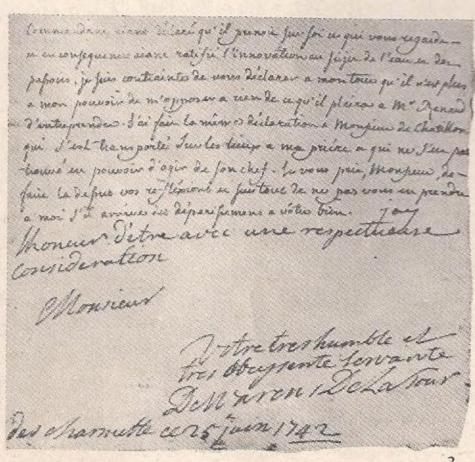 Commandant ayant déclaré qu'il prenoit sur soi ce qui vous regarde
et en consequence ayant ratifié l'innovation au sujet de l'eau et des
je suis contrainte de vous déclarer a mon tour qu'il n'est plus
a mon pouvoir de m'opposer a rien de ce qu'il plaira a Mr Renaud
d'entreprendre. J'ai fait la même déclaration a Monsieur de Chatillon
qui s'est transporté sur les lieux a ma prière, et qui ne s'est pas
trouvé en pouvoir d'agir de son chef. Je vous prie, Monsieur, de
faire la dessus vos reflexions et surtout de ne pas vous en prendre
a moi s'il arrive des a vôtre bien. jay
lhoneur d'être avec une respectueuse
consideration
Monsieur
Votre tres humble et
tres obeyssente servante
De Warens De La Tour
des charmette ce 25 juin 1742